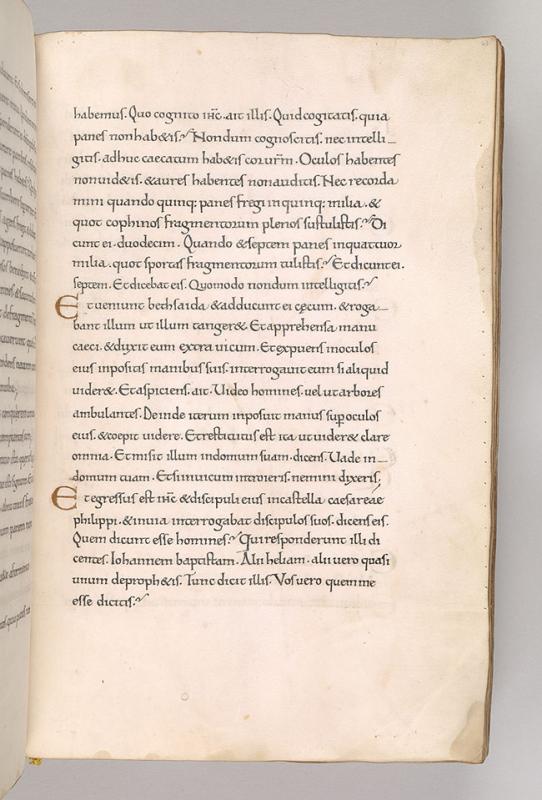 habemus. Quo cognito ihc. ait illis. Quid cogitatis. quia
panes non hab&is.? Nondum cognoscitis. nec intelli_
gitis. adhuc caecatum hab&is cor urm̄. Oculos habentes
non uid&is. & aures habentes non auditis. Nec recorda
mini quando quinq; panes fregi in quinq; milia. &
quot cophinos fragmentorum plenos sustulistis.? Di
cunt ei. duodecim. Quando & septem panes in quattuor
milia. quot sportas fragmentorum tulistis.? Et dicunt ei.
septem. Et dicebat eis. Quomodo nondum intelligitis.?
Et ueniunt bethsaida & adducunt ei cęcum. & roga_
bant illum ut illum tanger&. Et apprehensa manu
caeci. & duxit eum extra uicum. Et expuens in oculos
eius inpositis manibus suis. interrogauit eum si aliquid
uider&. Et aspiciens. ait. Uideo homines. uel ut arbores
ambulantes. Deinde iterum inposuit manus sup oculos
eius. & coepit uidere. Et restitutus est ita ut uider& clare
omnia. Et misit illum in domum suam. dicens. Uade in_
domum tuam. Et si in uicum introieris. nemini dixeris;
Et egressus est ihc & discipuli eius in castella caesareae
philippi. & in uia interrogabat discipulos suos. dicens eis.
Quem dicunt esse homines.? Qui responderunt illi di
centes. Iohannem baptistam. Alii heliam. alii uero quasi
unum de proph&is. Tunc dicit illis. Vos uero quem me
esse dicitis.?